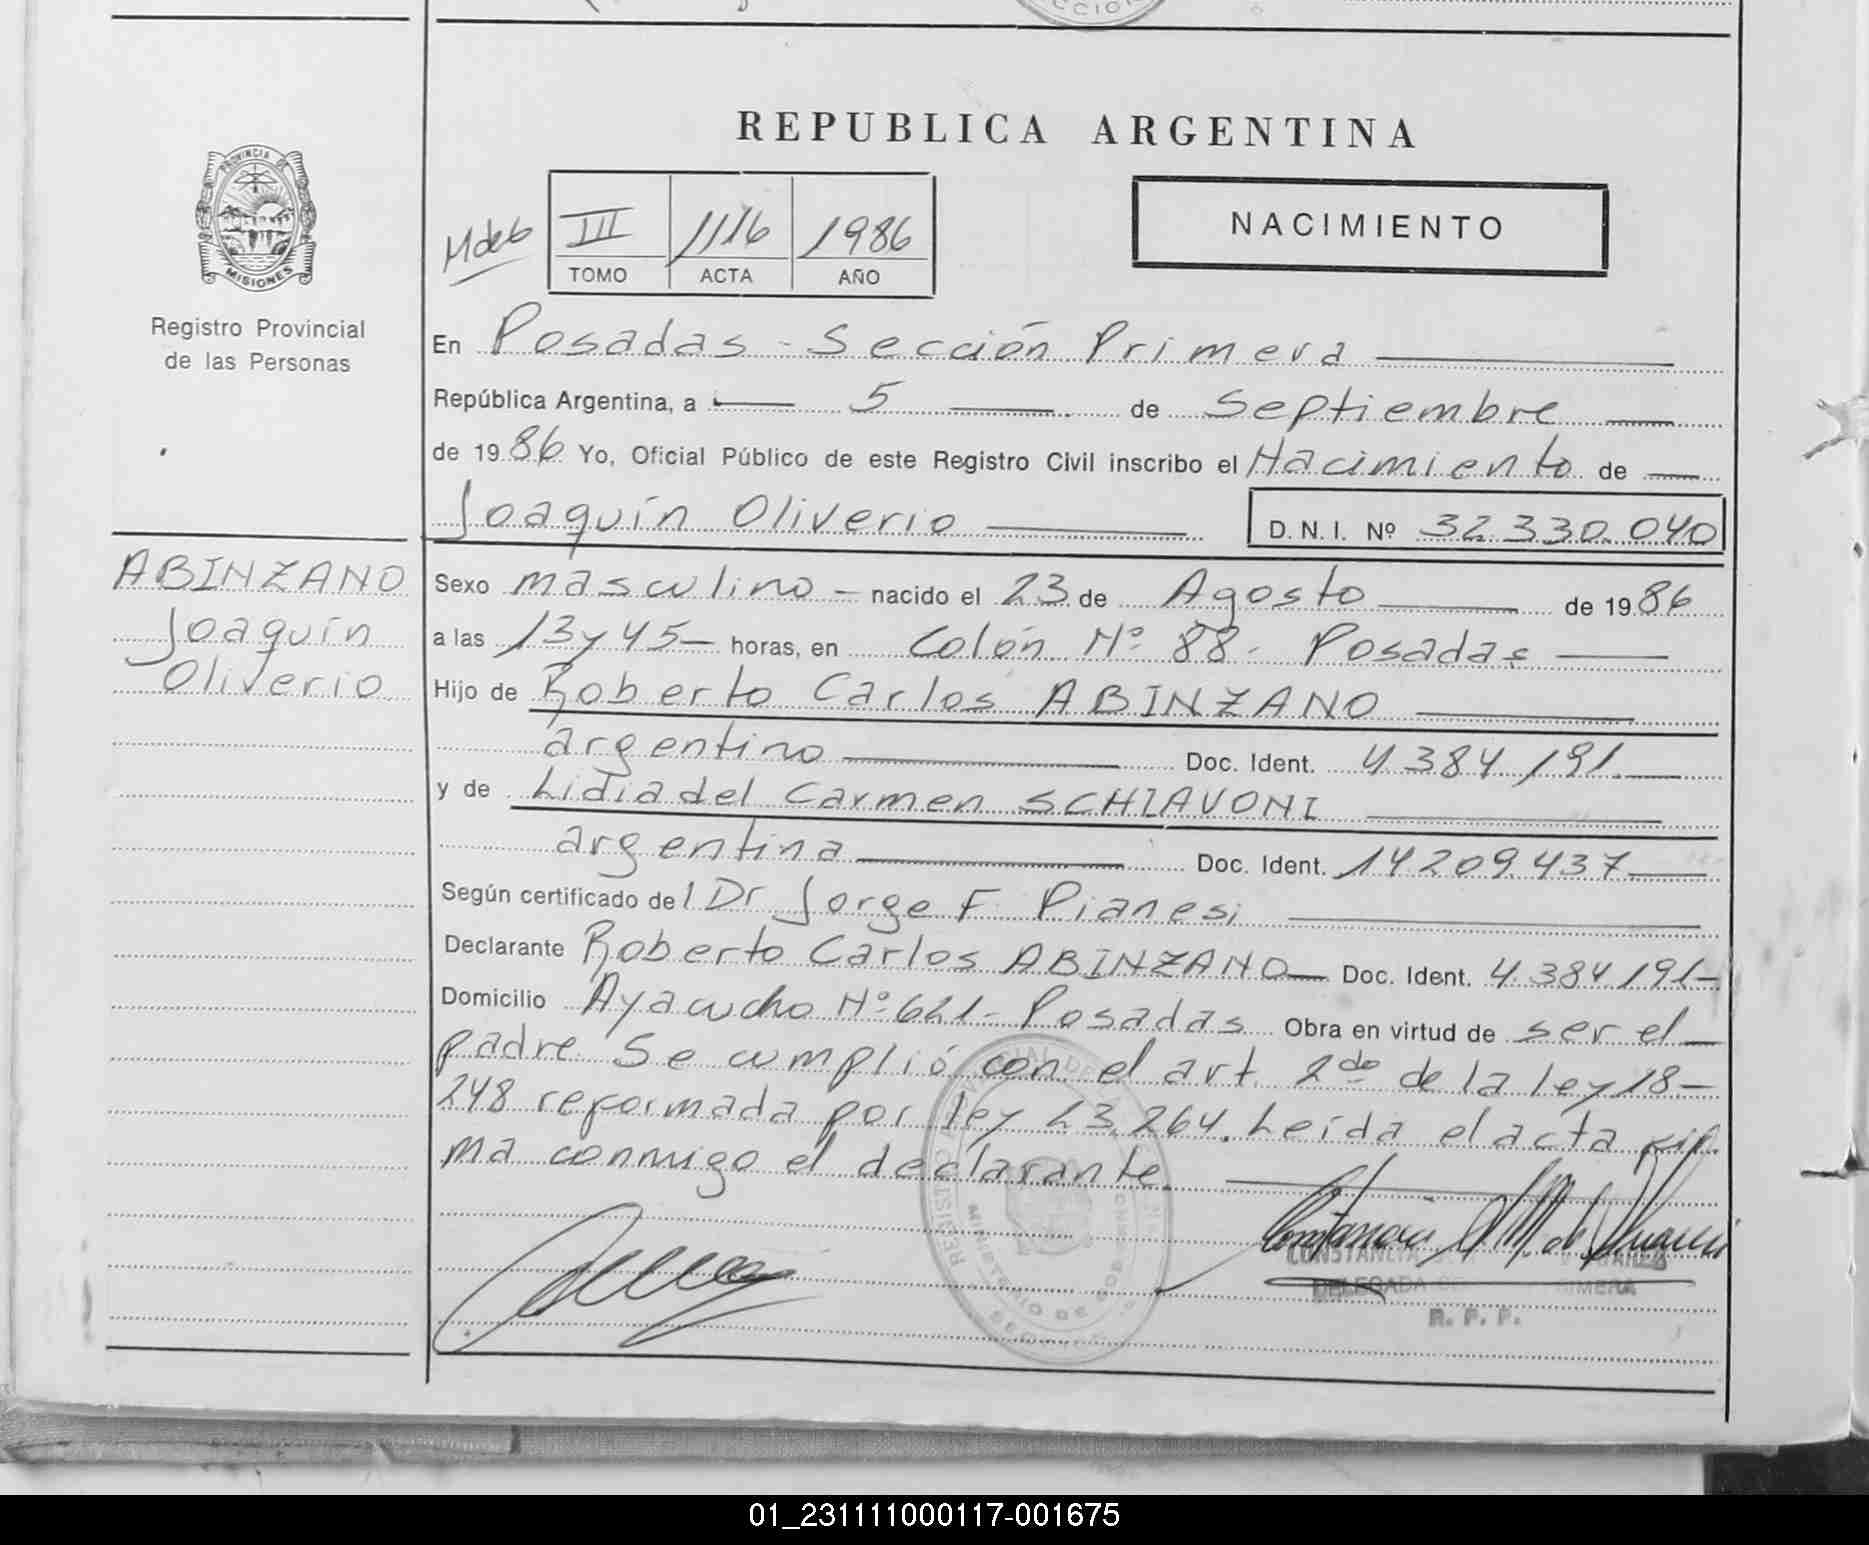 REPUBLICA ARGENTINA
PROVINCIA DE
MISIONES
Registro Provincial
de las Personas
III 1116 1986
TOMO ACTA AÑO
NACIMIENTO
En Posadas - Sección Primera
República Argentina, a 5 de Septiembre
de 1986 Yo, Oficial Público de este Registro Civil inscribo el Nacimiento de
Joaquín Oliverio D.N.I. Nº 32.330.040
ABINZANO
Joaquín
Oliverio
Sexo masculino - nacido el 23 de Agosto de 1986
a las 13 y 45 horas, en Colón Nº 88 - Posadas
Hijo de Roberto Carlos ABINZANO
argentino Doc. Ident. 4.384.191.
y de Lidia del Carmen SCHIAVONI
argentina Doc. Ident. 14.209.437
Según certificado del Dr Jorge F. Pianesi
Declarante Roberto Carlos ABINZANO Doc. Ident. 4.384.191-
Domicilio Ayacucho Nº 621 - Posadas Obra en virtud de ser el
padre. Se cumplió con el art. 2do de la ley 18-
248 reformada por ley 23.264. Leída el acta fir
ma conmigo el declarante.
R. P. P.
01_231111000117-001675